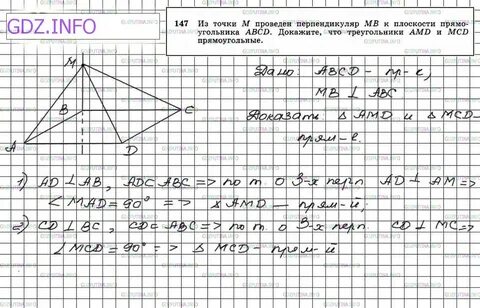 GDZ.INFO
147 Из точки M проведен перпендикуляр MB к плоскости прямо-
угольника ABCD. Докажите, что треугольники AMD и MCD
прямоугольные.
Дано: ABCD - пр-к,
MB ⊥ ABC
Доказать: △ AMD и △ MCD-
прям-е.
M
B
C
A
D
1) AD ⊥ AB, AD⊂ ABC => по т. о 3-х перп. AD ⊥ AM =>
∠ MAD = 90° => △ AMD - прям-й;
2) CD ⊥ BC, CD⊂ ABC => по т. о 3-х перп. CD ⊥ MC =>
∠ MCD = 90° => △ MCD - прям-й